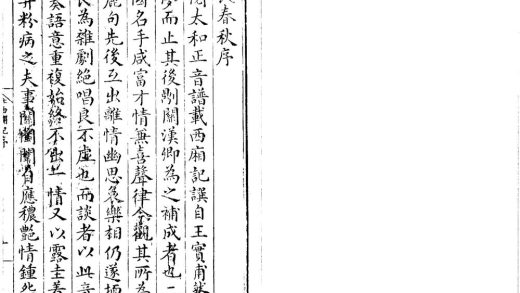 春秋序
太和正音譜載西廂記譔自王實甫然
而止其後則關漢卿為之補成者也二
國名手咸富才情兼喜聲律今觀其所為
句先後互出離情幽思哀樂相仍遂擅
為雜劇絕唱良不虛也而談者以此竟
語意重複始終不出一情又以露圭著
粉病之夫事關閨闈自應穠艷情鍾